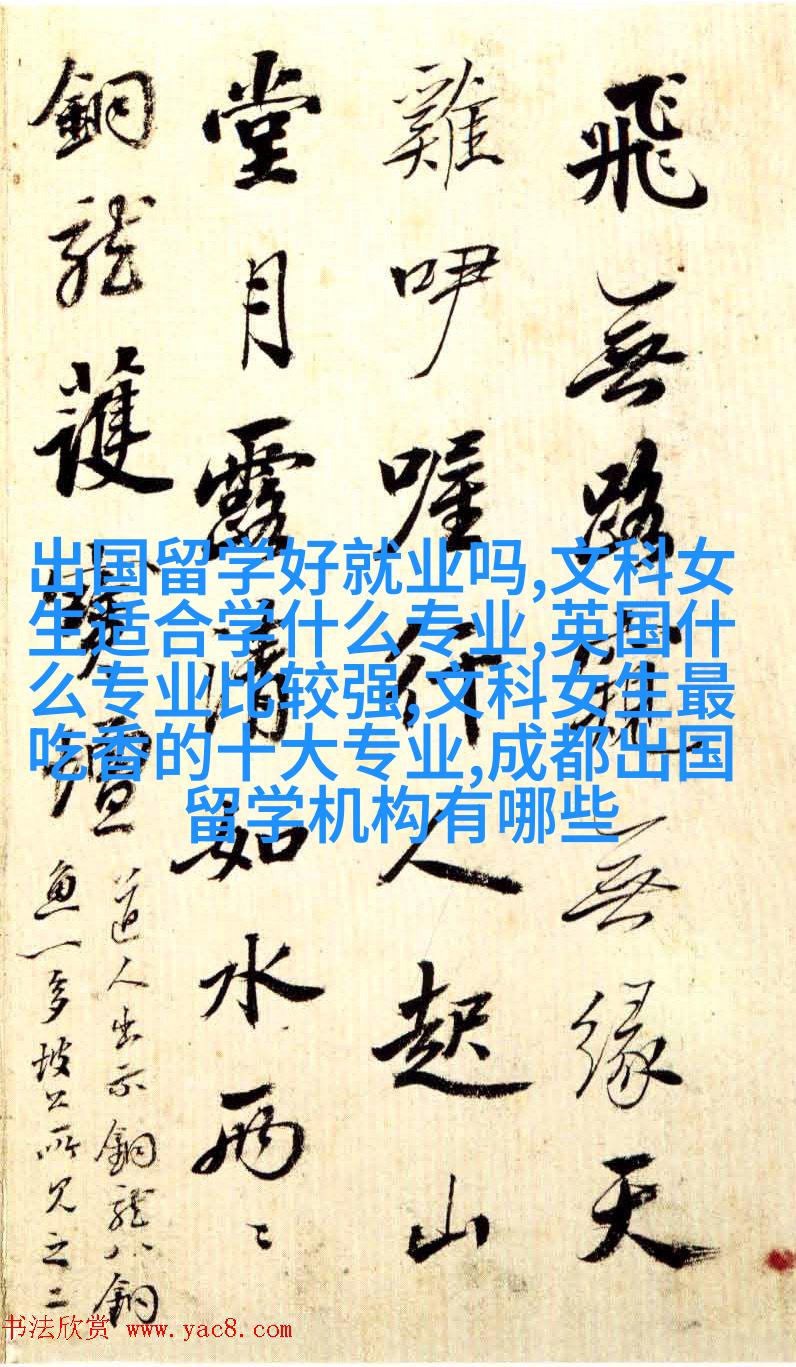 飛無路寐無緣天
雞咿喔行人起山
堂月露清如水兩〻
銅龍護壇
道人出示銅龍八銅
魚一多坡公所見之二
出国留学好就业吗,文科女
生适合学什么专业,英国什
么专业比较强,文科女生最
吃香的十大专业,成都出国
留学机构有哪些
书法欣赏 www.yac8.com